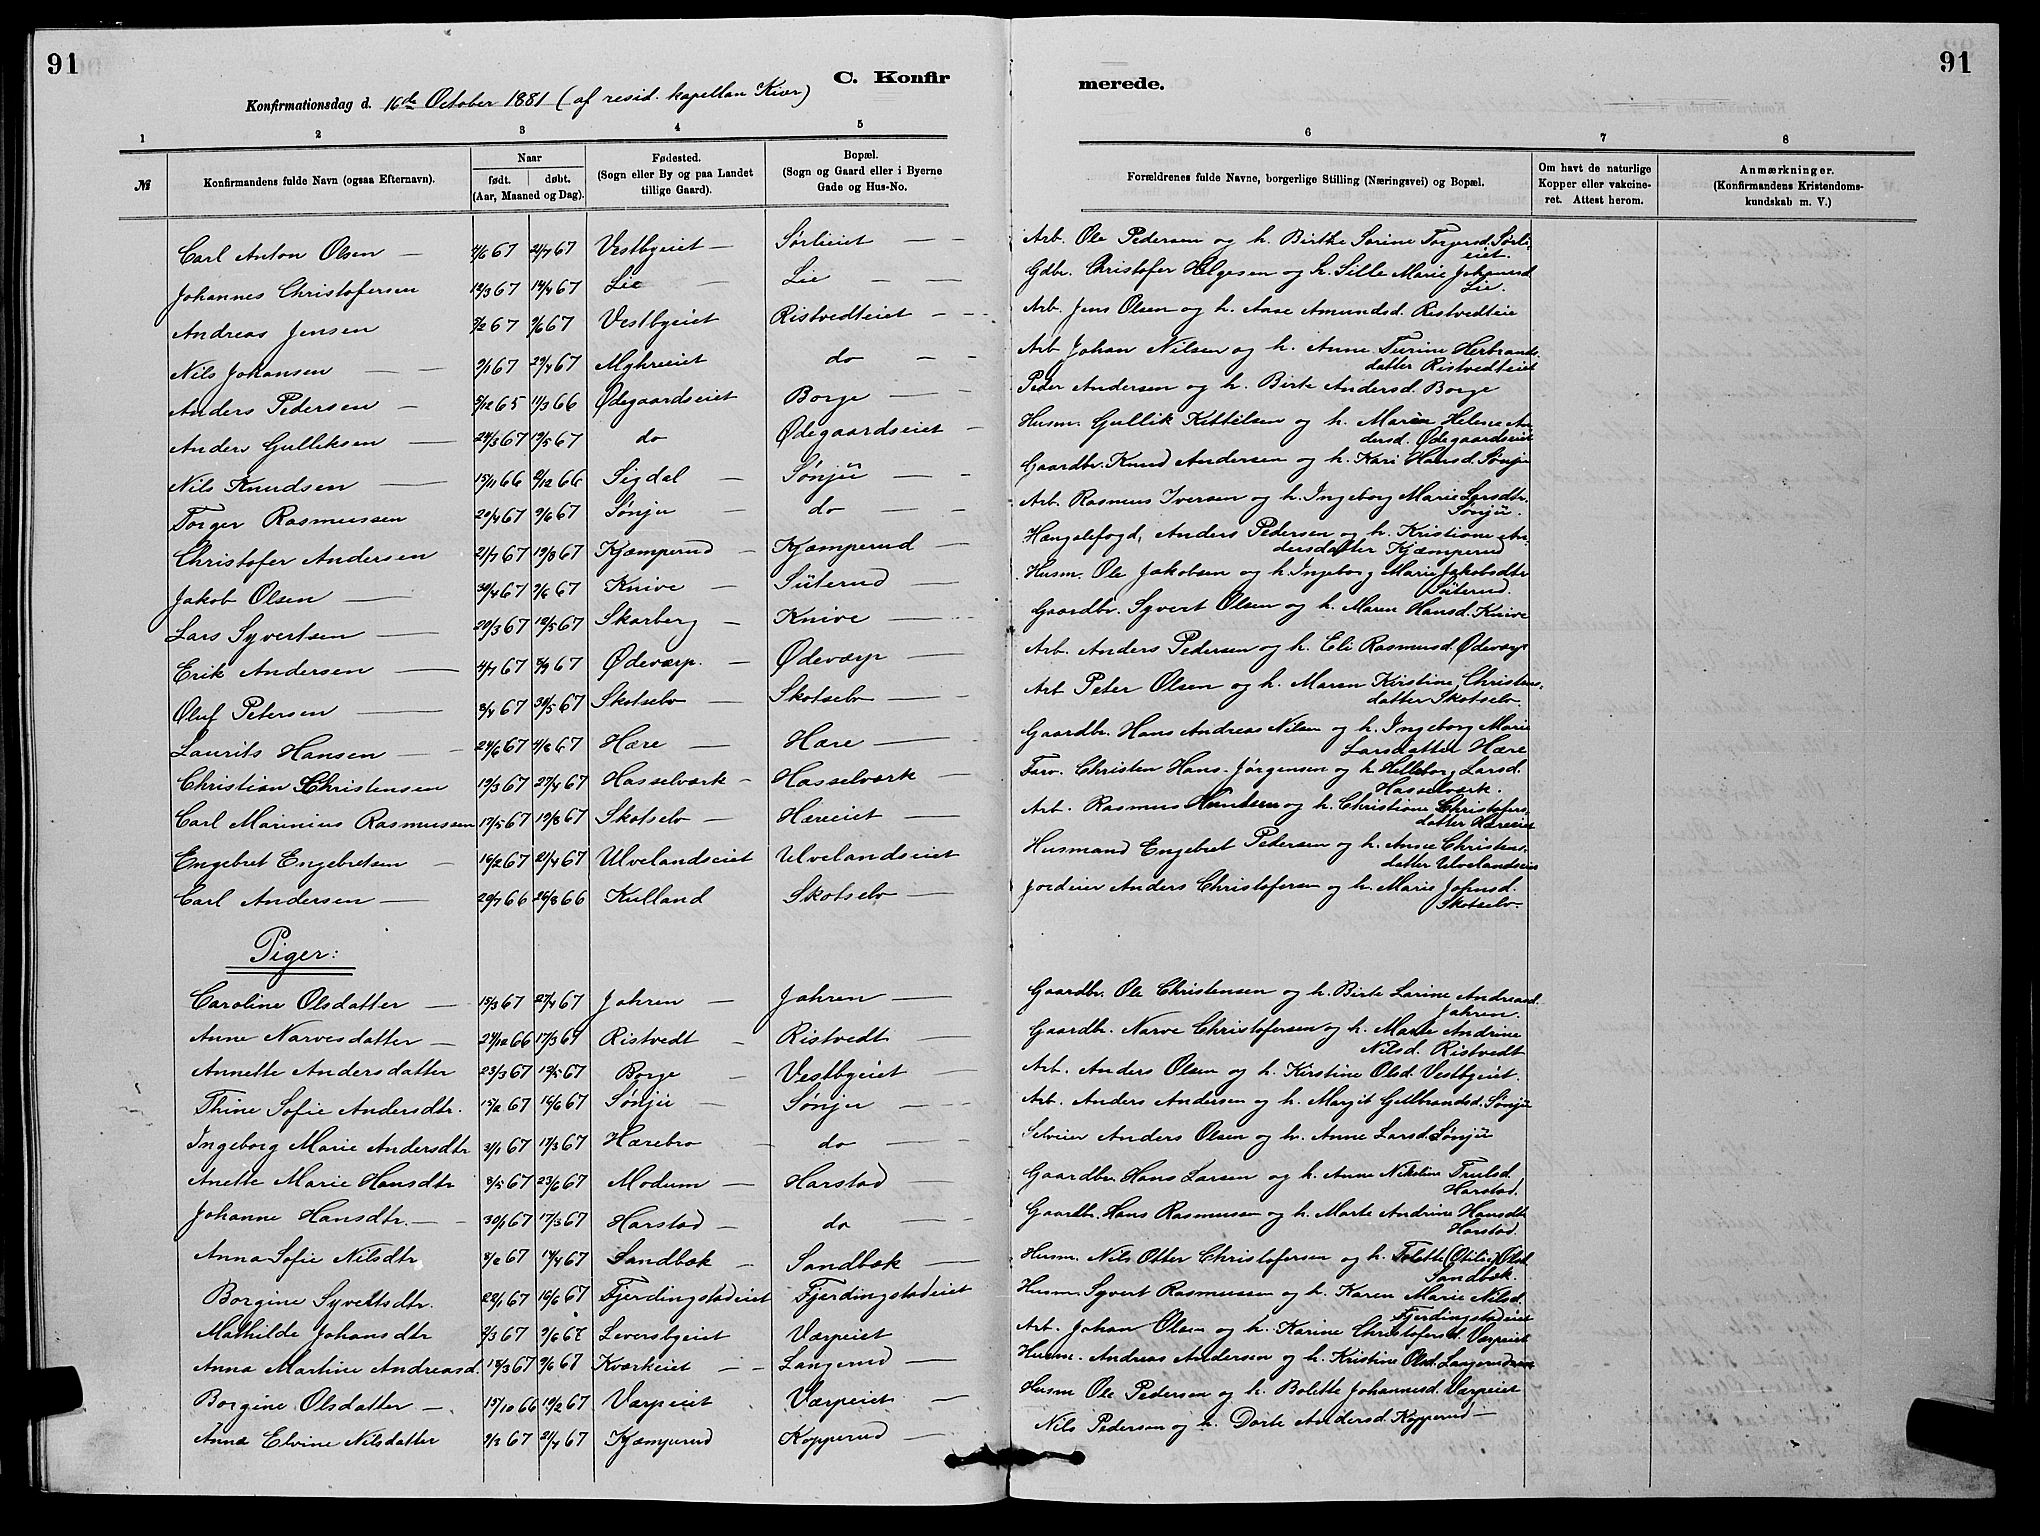 91
91
C. Konfir
merede.
Konfirmationsdag d. 16de October 1881 (af resid. kapellan Kiær)
1 2 3 4 5
6 7 8
№
Konfirmandens fulde Navn (ogsaa Efternavn).
Naar
født. døbt.
(Aar, Maaned og Dag).
Fødested.
(Sogn eller By og paa Landet
tillige Gaard).
Bopæl.
(Sogn og Gaard eller i Byerne
Gade og Hus-No.
Forældrenes fulde Navne, borgerlige Stilling (Næringsvei) og Bopæl.
Om havt de naturlige
Kopper eller vakcine-
ret. Attest herom.
Anmærkninger.
(Konfirmandens Kristendoms-
kundskab m. V.)
Carl Anton Olsen — 21/7 67 Vestbyeiet — Sørlieiet — Arb. Ole Pedersen og h. Birthe Sorine Torgersd. Sørli-
eiet.
Johannes Christofersen 14/4 67 Lie — Lie — Gdbr. Christofer Helgesen og h. Sille Marie Johannesd
Lie.
Andreas Jensen 3/2 67 9/6 67 Vestbyeiet Ristvedteiet — Arb. Jens Olsen og h. Aase Amundsd. Ristvedteie
Nils Johansen — 9/1 67 do — Arb Johan Nilsen og h. Anne Turine Herbrands-
datter Ristvedteiet
Anders Pedersen — 11/3 66 Ødegaardseiet Borge — Peder Andersen og h. Birte Andersd. Borge
Anders Gulliksen — 24/3 67 19/5 67 do Ødegaardseiet — Husm. Gullik Kittilsen og h. Maren Helene An-
dersd. Ødegaardseiet
Nils Knudsen — 15/11 66 9/12 66 Sigdal — Sønju — Gaardbr. Knud Andersen og h. Kari Hansd. Sønju
Torger Rasmussen 20/4 67 9/6 67 Sønju — do — Arb. Rasmus Iversen og h. Ingeborg Marie Larsdtr.
Sønju.
Christofer Andersen 21/7 67 19/8 67 Kjæmperud — Kjæmperud — Hængslefogd, Anders Pedersen og h. Kristiane An-
dersdatter Kjæmperud
Jakob Olsen — 30/4 67 9/6 67 Knive — Süterud — Husm. Ole Jakobsen og h. Ingeborg Marie Jakobsdtr
Süterud.
Lars Syvertsen — 20/3 67 12/5 67 Skarberg — Knive — Gaardbr. Syvert Olsen og h. Maren Hansd. Knive
Erik Andersen — 4/7 67 67 Ødeværp. — Ødeværp — Arb. Anders Pedersen og h. Eli Rasmusd. Ødeværp
Oluf Petersen — 8/4 67 30/5 67 Skotselv — Skotselv — Arb Peter Olsen og h. Maren Kirstine Christens-
datter Skotselv.
Laurits Hansen — 24/6 67 4/8 67 Hære — Hære — Gaardbr. Hans Andreas Nilsen og h. Ingeborg Marie
Larsdatter Hære
Christian Christensen 19/3 67 27/4 67 Hasselværk — Hasselværk — Farv. Christen Hans-Jørgensen og h. Helleborg Larsd.
Hasselværk.
Carl Marinius Rasmussen 17/5 67 19/8 67 Skotselv — Hæreeiet — Arb. Rasmus Knudsen og h. Christiane Christofers-
datter Hæreeiet
Engebret Engebretsen — 16/2 67 21/4 67 Ulvelandseiet Ulvelandseiet Husmand Engebret Petersen og h. Anne Christens-
datter Ulvelandseie
Carl Andersen — 20/7 66 26/8 66 Kulland Skotselv — Jordeier Anders Christofersen og h. Marie Johnsd.
Skotselv.
Piger:
Caroline Olsdatter — 15/3 67 27/4 67 Jahren — Jahren — Gaardbr. Ole Christensen og h. Birte Larine Andreasd.
Jahren.
Anne Narvesdatter — 24/12 66 17/3 67 Ristvedt — Ristvedt — Gaardbr. Narve Christofersen og h. Marte Andrine
Nilsd. Ristvedt
Annette Andersdatter 23/3 67 19/5 67 Borge — Vestbyeiet — Arb. Anders Olsen og h. Kirstine Olsd. Vestbyeiet.
Thine Sofie Andersdtr. 15/2 67 16/6 67 Sønju — Sønju — Arb. Anders Andersen og h. Margit Gulbrandsd. Sønju
Ingeborg Marie Andersdtr 3/1 67 17/3 67 Hærebro — do — Selveier Anders Olsen og h. Anne Larsd. Sønju
Anette Marie Hansdtr 8/5 67 23/6 67 Modum — Harstad — Gaardbr. Hans Larsen og h. Anne Nikoline Trulsd.
Harstad.
Johanne Hansdtr. — 30/1 67 17/3 67 Harstad — do — Gaardbr. Hans Rasmussen og h. Marte Andrine Hansdt
Harstad.
Anna Sofie Nilsdtr 8/2 67 14/4 67 Sandbæk — Sandbæk — Husm. Nils Otter Christofersen og h. Tolette (Otilie) Olsd.
Sandbæk.
Borgine Syvertsdtr. 22/1 67 16/6 67 Fjerdingstadeiet Fjerdingstadeiet Husm. Syvert Rasmussen og h. Karen Marie Nilsd.
Fjerdingstadeiet
Mathilde Johansdtr 9/3 67 9/6 67 Leversbyeiet Værpeiet Arb. Johan Olsen og h. Karine Christofersd. Værpeiet
Anna Martine Andreasd. 18/3 67 9/6 67 Kværkeiet — Langerud — Husm. Andreas Andersen og h. Kristine Olsd.
Borgine Olsdatter — 15/10 66 19/2 67 Værpeiet Værpeiet — Husm Ole Pedersen og h. Bolette Johannesd. Værpeiet
Anna Elvine Nilsdatter 9/3 67 21/4 67 Kjæmperud Kopperud — Nils Pedersen og h. Dorte Andersd. Kopperud —